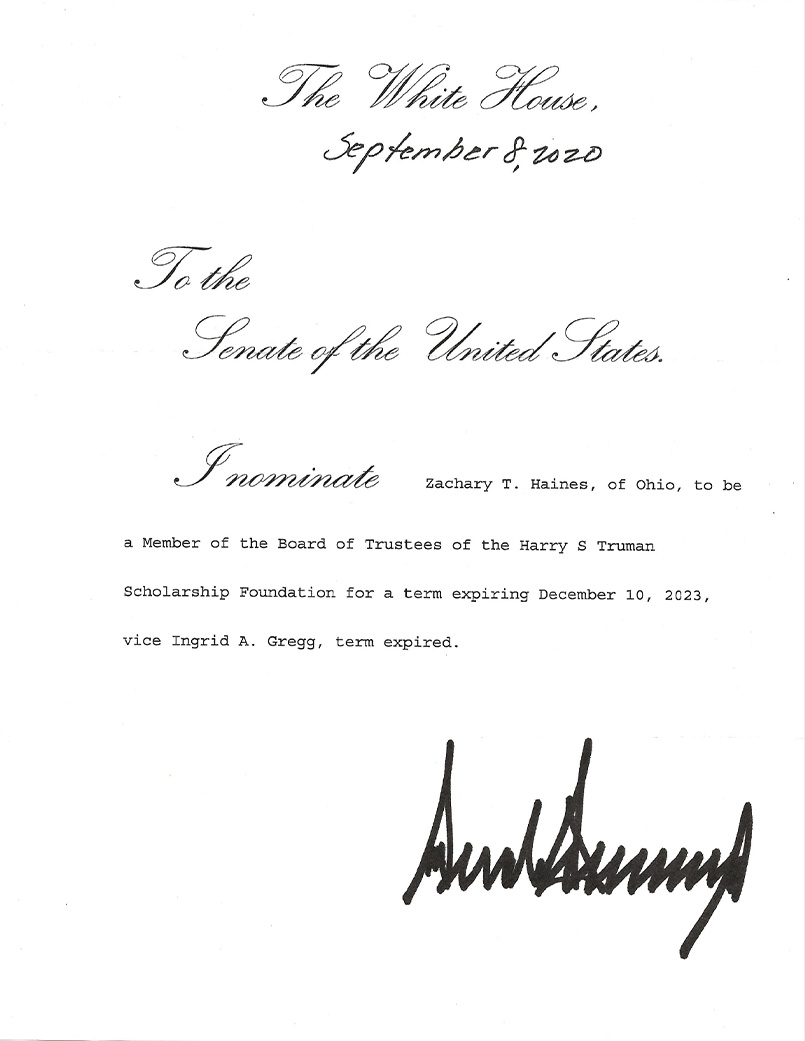 The White House,
September 8, 2020
To the
Senate of the United States.
I nominate Zachary T. Haines, of Ohio, to be
a Member of the Board of Trustees of the Harry S Truman
Scholarship Foundation for a term expiring December 10, 2023,
vice Ingrid A. Gregg, term expired.